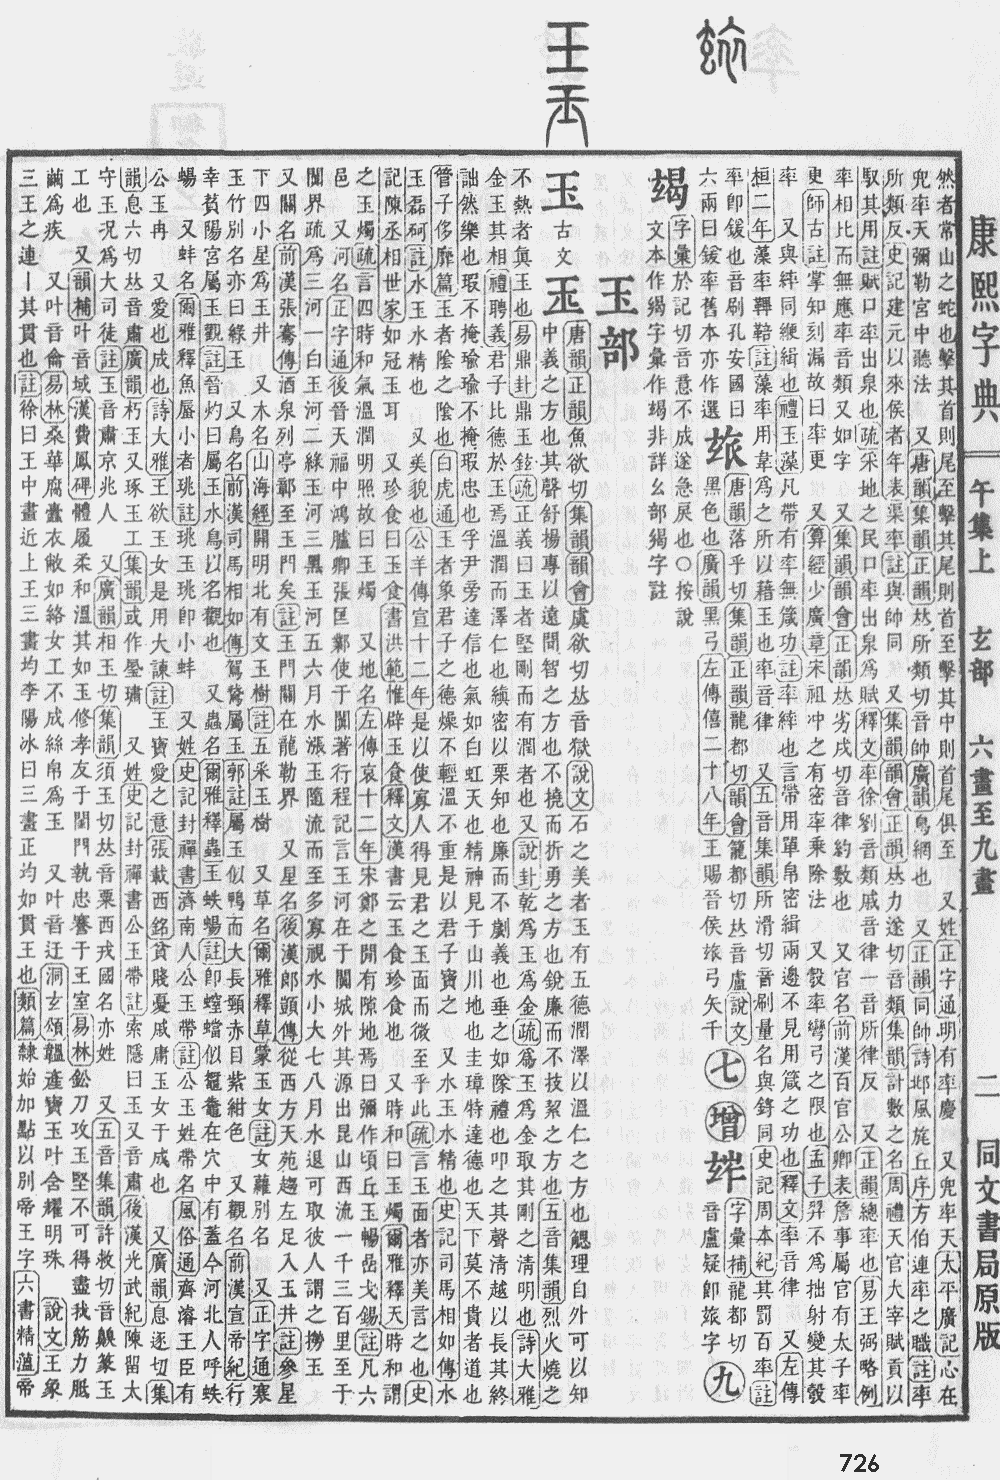 康熙字典 午集上 玄部 六畫至九畫 二 同文書局原版
然者常山之蛇也擊其首則尾至擊其尾則首至擊其中則首尾俱至 又姓正字通明有率慶 又兜率天太平廣記心在
兜率天彌勒宮中聽法 又唐韻集韻正韻𠀤所類切音帥廣韻鳥網也 又正韻同帥詩邶風旄丘序方伯連率之職註率
所類反史記建元以來侯者年表渠率註與帥同 又集韻韻會正韻𠀤力遂切音類集韻計數之名周禮天官大宰賦貢以
馭其用註賦口率出泉也疏宋地之民口率出泉爲賦釋文率徐劉音類戚音律一音所律反 又正韻總率也易王弼略例
率相比而無應率音類又如字 又集韻韻會正韻𠀤劣戌切音律約數也 又官名前漢百官公卿表詹事屬官有太子率
更師古註掌知刻漏故曰率更 又算經少廣章宋祖沖之有密率乘除法 又彀率彎弓之限也孟子羿不爲拙射變其彀
率 又與繂同繩緝也禮玉藻凡帶有率無箴功註率繂也言帶用單帛密緝兩邊不見用箴之功也釋文率音律 又左傳
桓二年藻率鞸鞛註藻率用韋爲之所以藉玉也率音律 又五音集韻所滑切音刷量名與鋝同史記周本紀其罰百率註
率卽鍰也音刷孔安國曰
六兩曰鍰率舊本亦作選
玈 唐韻落乎切集韻正韻龍都切韻會籠都切𠀤音盧說文
黑色也廣韻黑弓左傳僖二十八年王賜晉侯玈弓矢千
七
增
𤣎 字彙補龍都切
音盧疑卽玈字
九
竭 字彙於記切音意不成遂急戾也○按說
文本作緆字彙作竭非詳幺部緆字註
玉部
玉 古文 𤣪 唐韻正韻魚欲切集韻韻會虞欲切𠀤音獄說文石之美者玉有五德潤澤以溫仁之方也䚡理自外可以知
中義之方也其聲舒揚專以遠聞智之方也不撓而折勇之方也銳廉而不技絜之方也五音集韻烈火燒之
不熱者眞玉也易鼎卦鼎玉鉉疏正義曰玉者堅剛而有潤者也 又說卦乾爲玉爲金疏爲玉爲金取其剛之淸明也詩大雅
金玉其相禮聘義君子比德於玉焉溫潤而澤仁也縝密以栗知也廉而不劌義也垂之如隊禮也叩之其聲淸越以長其終
詘然樂也瑕不掩瑜瑜不掩瑕忠也孚尹旁達信也氣如白虹天也精神見于山川地也圭璋特達德也天下莫不貴者道也
管子侈靡篇玉者陰之陰也白虎通玉者象君子之德燥不輕溫不重是以君子寶之 又水玉水精也史記司馬相如傳水
玉磊砢註水玉水精也 又美貌也公羊傳宣十二年是以使寡人得見君之玉面而微至乎此疏言玉面者亦美言之也史
記陳丞相世家如冠玉耳 又珍食曰玉食書洪範惟辟玉食釋文漢書云玉食珍食也 又時和曰玉燭爾雅釋天時和謂
之玉燭疏言四時和氣溫潤明照故曰玉燭 又地名左傳哀十二年宋鄭之閒有隙地焉曰彌作頃丘玉暢嵒戈錫註凡六
邑 又河名正字通後晉天福中鴻臚卿張匡鄴使于闐著行程記言玉河在于闐城外其源出昆山西流一千三百里至于
闐界疏爲三河一白玉河二綠玉河三黑玉河五六月水漲玉隨流而至多寡視水小大七八月水退可取彼人謂之撈玉
又關名前漢張騫傳酒泉列亭鄣至玉門矣註玉門關在龍勒界 又星名後漢郞顗傳從西方天苑趨左足入玉井註參星
下四小星爲玉井 又木名山海經開明北有文玉樹註五采玉樹 又草名爾雅釋草蒙玉女註女蘿別名 又正字通寒
玉竹別名亦曰綠玉 又鳥名前漢司馬相如傳駕鵞屬玉郭註屬玉似鴨而大長頸赤目紫紺色 又觀名前漢宣帝紀行
幸萯陽宮屬玉觀註晉灼曰屬玉水鳥以名觀也 又蟲名爾雅釋蟲王蛈蝪註卽螲蟷似鼅鼄在穴中有蓋今河北人呼蛈
蝪 又蚌名爾雅釋魚蜃小者珧註珧玉珧卽小蚌 又姓史記封禪書濟南人公玉帶註公玉姓帶名風俗通齊濬王臣有
公玉冉 又愛也成也詩大雅王欲玉女是用大諫註玉寶愛之意張載西銘貧賤憂戚庸玉女于成也 又廣韻息逐切集
韻息六切𠀤音肅廣韻朽玉又琢玉工集韻或作璛璹 又姓史記封禪書公玉帶註索隱曰玉又音肅後漢光武紀陳留太
守玉況爲大司徒註玉音肅京兆人 又廣韻相玉切集韻須玉切𠀤音粟西戎國名亦姓 又五音集韻許救切音齅篆玉
工也 又韻補叶音域漢費鳳碑體履柔和溫其如玉修孝友于閨執忠謇于王室易林鉛刀攻玉堅不可得盡我筋力胝
繭爲疾 又叶音龠易林桑華腐蠹衣敝如絡女工不成絲帛爲玉 又叶音迂洞玄頌韞產寶玉叶含耀明珠 說文王象
三王之連丨其貫也註徐曰王中畫近上王三畫均李陽冰曰三畫正均如貫王也類篇隷始加點以別帝王字六書精溫帝
726